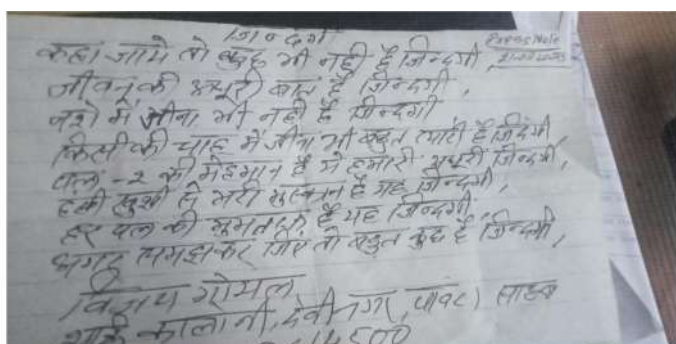 जिन्दगी
Press Note
कहा जाये तो कुछ भी नही है जिन्दगी,
जीवन की अधूरी बात है जिन्दगी,
नशे में जीना भी नही है जिन्दगी
किसी की चाह में जीना भी बहुत प्यारी है जिंदगी,
पल -२ की मेहमान है ये हमारी अधूरी जिन्दगी,
खुशी से भरी मुस्कान है यह जिन्दगी,
हर पल की है यह जिन्दगी,
अगर समझकर जिए तो बहुत कुछ है जिन्दगी,
विजय गोयल
कालोनी, देवीनगर, पांवटा साहब